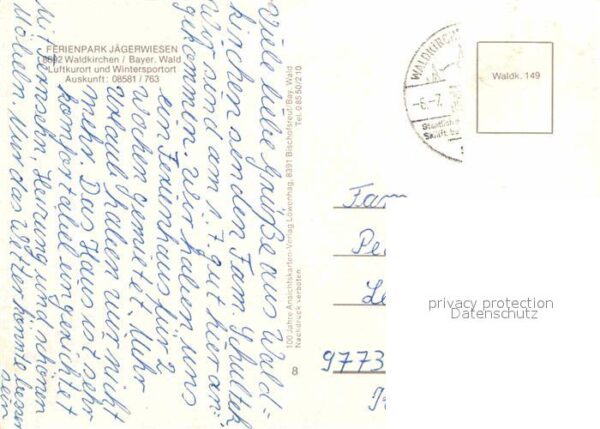 FERIENPARK JÄGERWIESEN
8392 Waldkirchen / Bayer. Wald
Luftkurort und Wintersportort
Auskunft: 08581 / 763
Viele liebe Grüße aus Wald=
kirchen senden Fam. Schulteh
Wir sind am 1.7. gut hier an=
gekommen. Wir haben uns
ein Ferienhaus für 2
Wochen gemietet. Mehr
Urlaub haben wir nicht
mehr. Das Haus ist sehr
komfortabel eingerichtet
mit Fernsehn, Heizung und schönen
Möbeln. Nur das Wetter könnte besser
sein
100 Jahre Ansichtskarten-Verlag Löwenhag, 8391 Bischofsreut/Bay. Wald
Nachdruck verboten
Tel. 085 50/210
8
WALDKIRCH
-6.-7.
Staatliche
Waldk. 149
Fam
Pe
Le
9773
privacy protection
Datenschutz